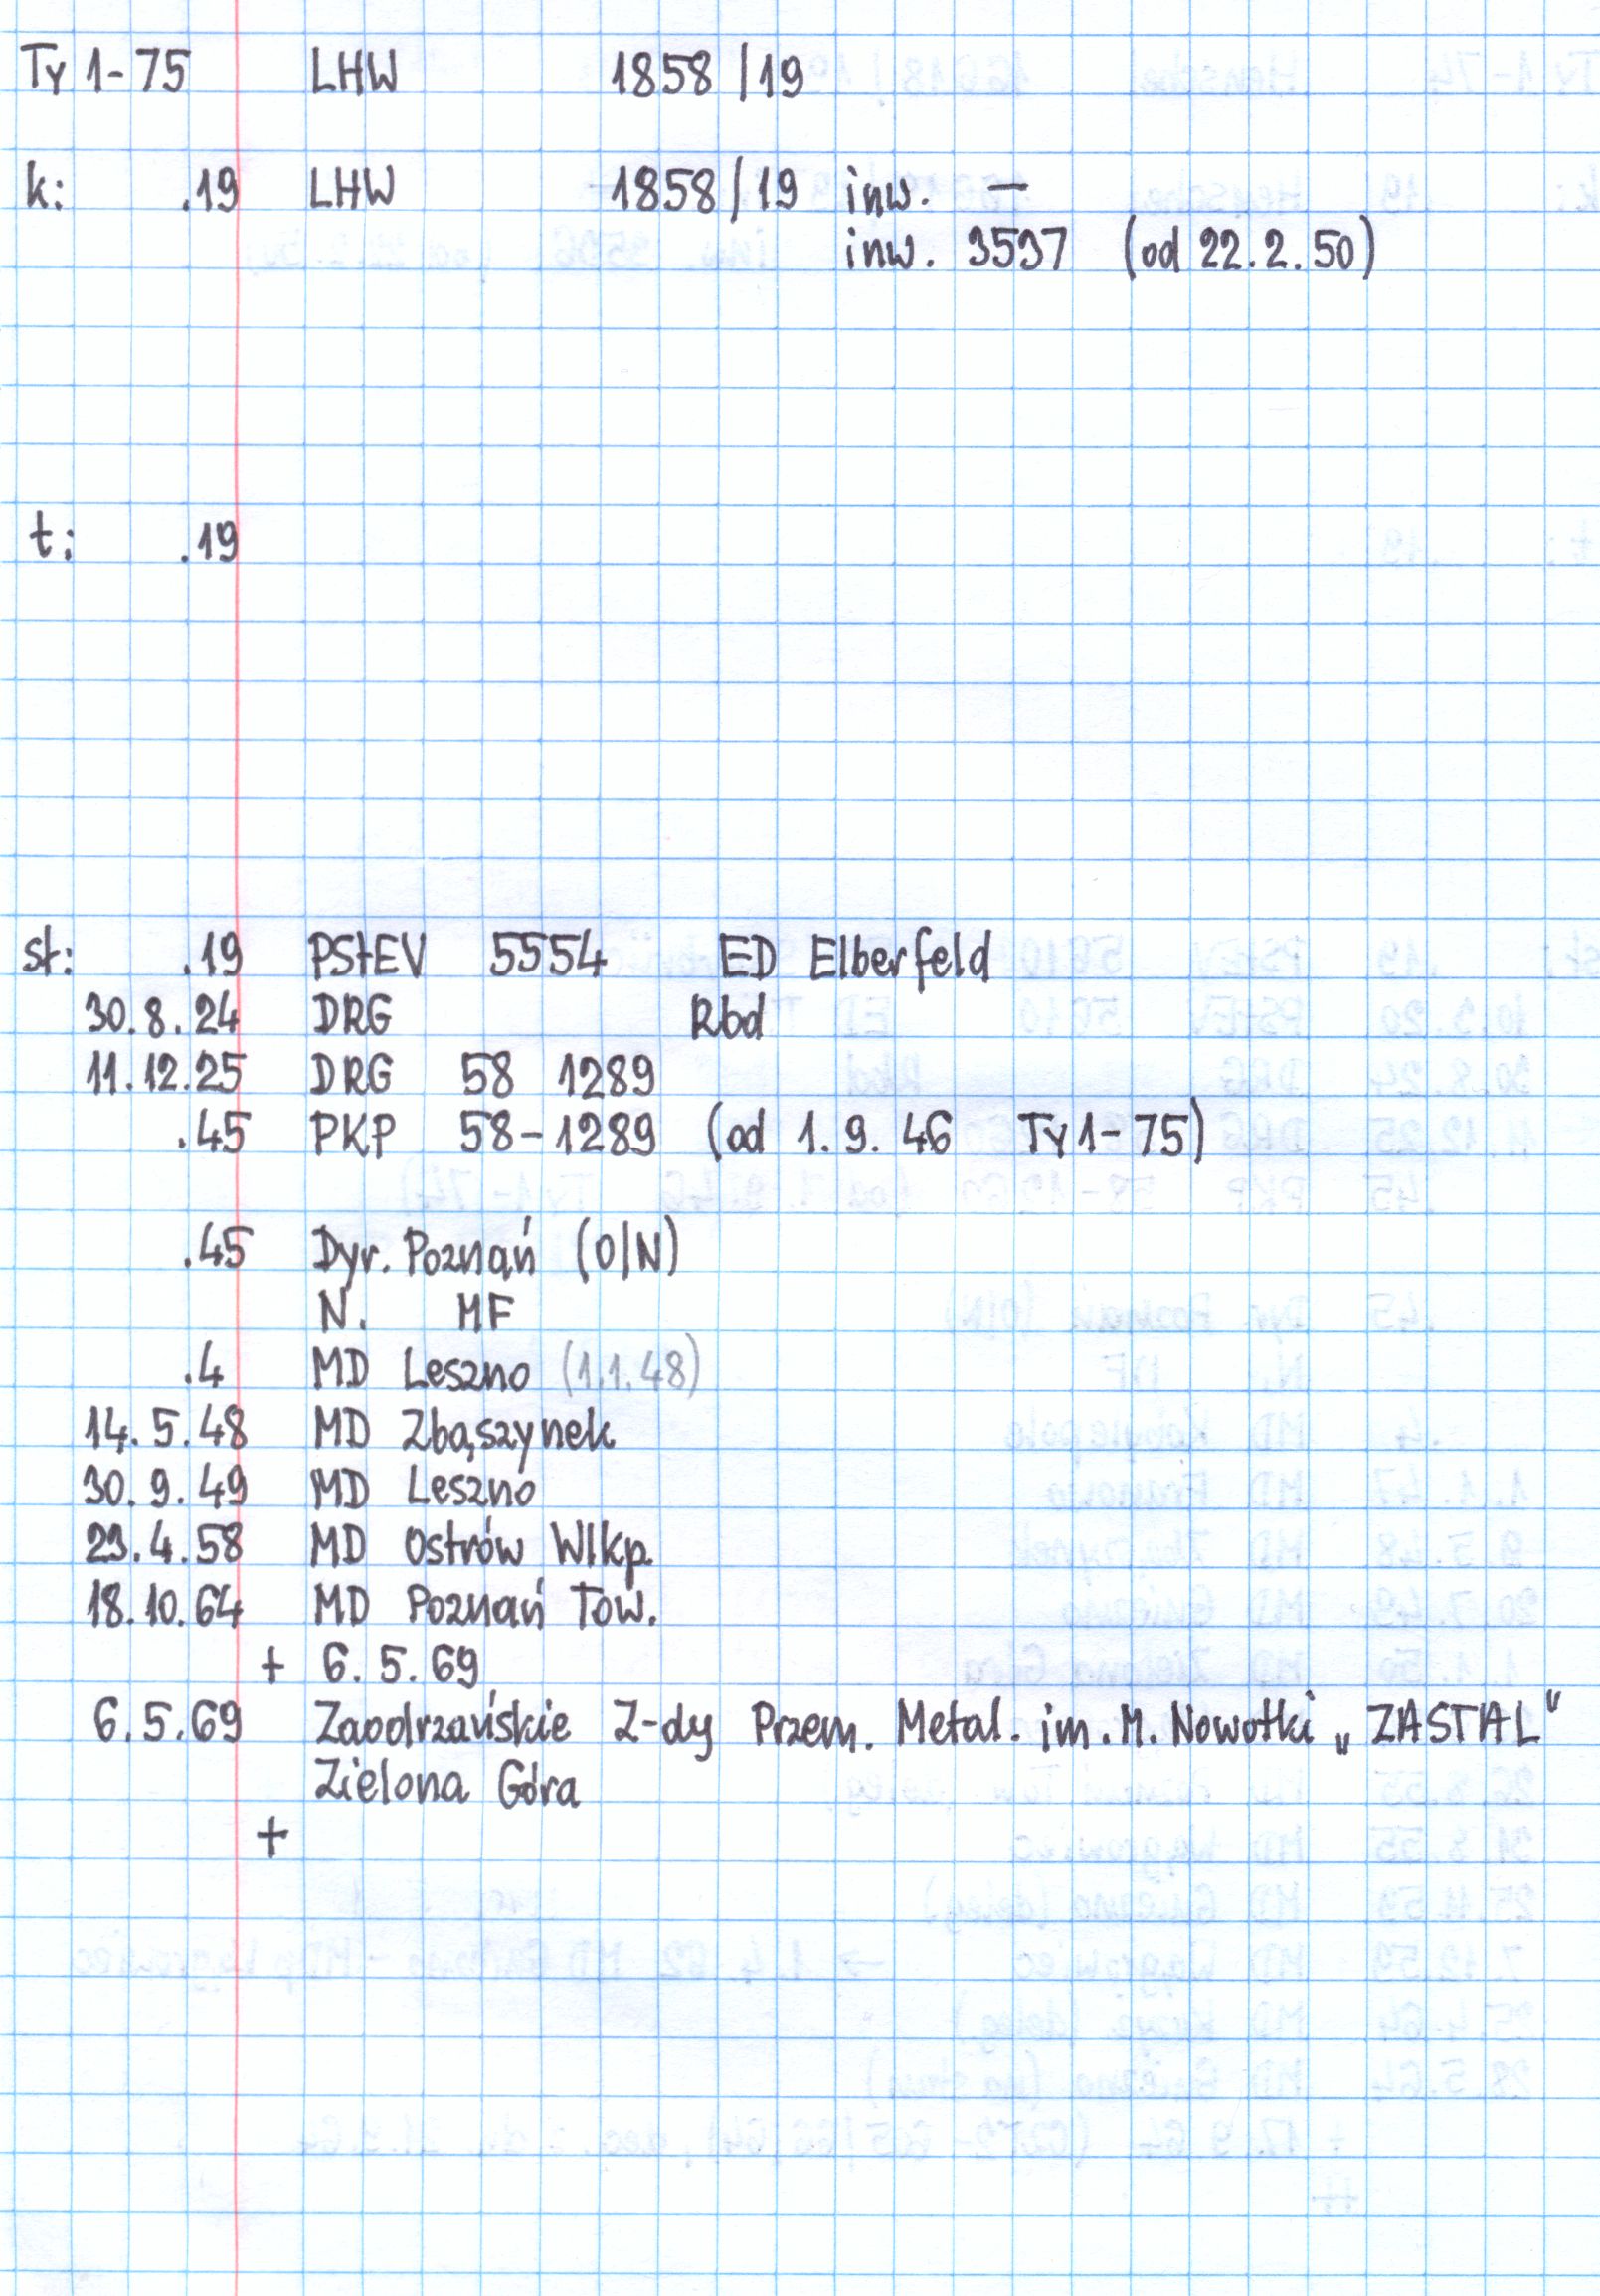 Ty 1-75 LHW 1858/19
k: .19 LHW 1858/19 inw. —
inw. 3597 (od 22.2.50)
t: .19
st: .19 PStEV 5554 ED Elberfeld
30.8.24 DRG Rbd
11.12.25 DRG 58 1289
.45 PKP 58-1289 (od 1.9.46 Ty1-75)
.45 Dyr. Poznań (O/N)
N. MF
.4 MD Leszno (1.1.48)
14.5.48 MD Zbąszynek
30.9.49 MD Leszno
29.4.58 MD Ostrów Wlkp.
18.10.64 MD Poznań Tow.
+ 6.5.69
6.5.69 Zaodrzańskie Z-dy Przem. Metal. im. M. Nowotki „ZASTAL"
Zielona Góra
+